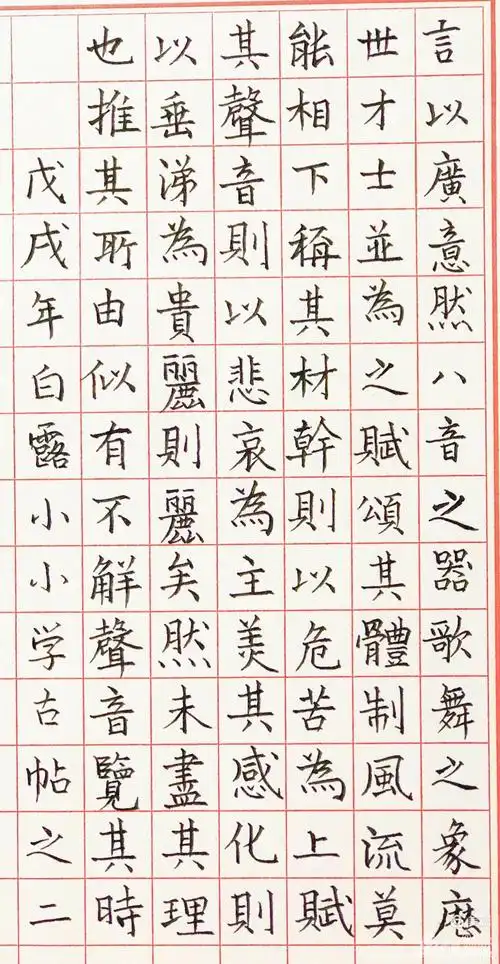 言以廣意然八音之器歌舞之象歷
世才士並為之賦頌其體制風流莫
能相下稱其材幹則以危苦為上賦
其聲音則以悲哀為主美其感化則
以垂涕為貴麗則麗矣然未盡其理
也推其所由似有不解聲音覽其時
戊戌年白露小小学古帖之二